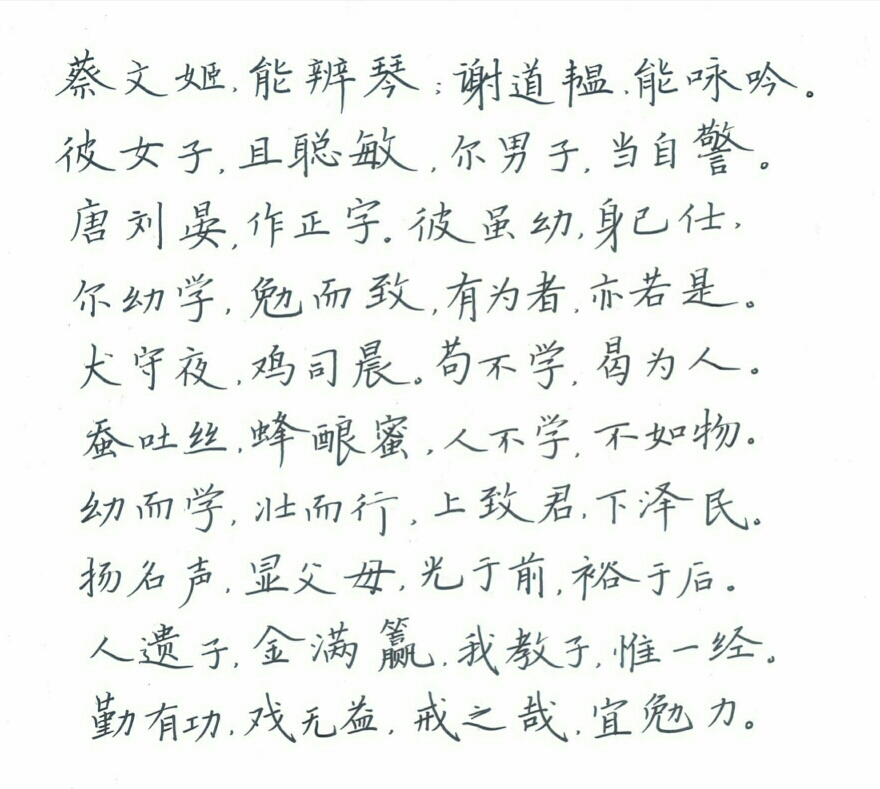 蔡文姬，能辨琴；谢道韫，能咏吟。
彼女子，且聪敏，尔男子，当自警。
唐刘晏，作正字。彼虽幼，身已仕，
尔幼学，勉而致，有为者，亦若是。
犬守夜，鸡司晨。苟不学，曷为人。
蚕吐丝，蜂酿蜜，人不学，不如物。
幼而学，壮而行，上致君，下泽民。
扬名声，显父母，光于前，裕于后。
人遗子，金满籯，我教子，惟一经。
勤有功，戏无益，戒之哉，宜勉力。